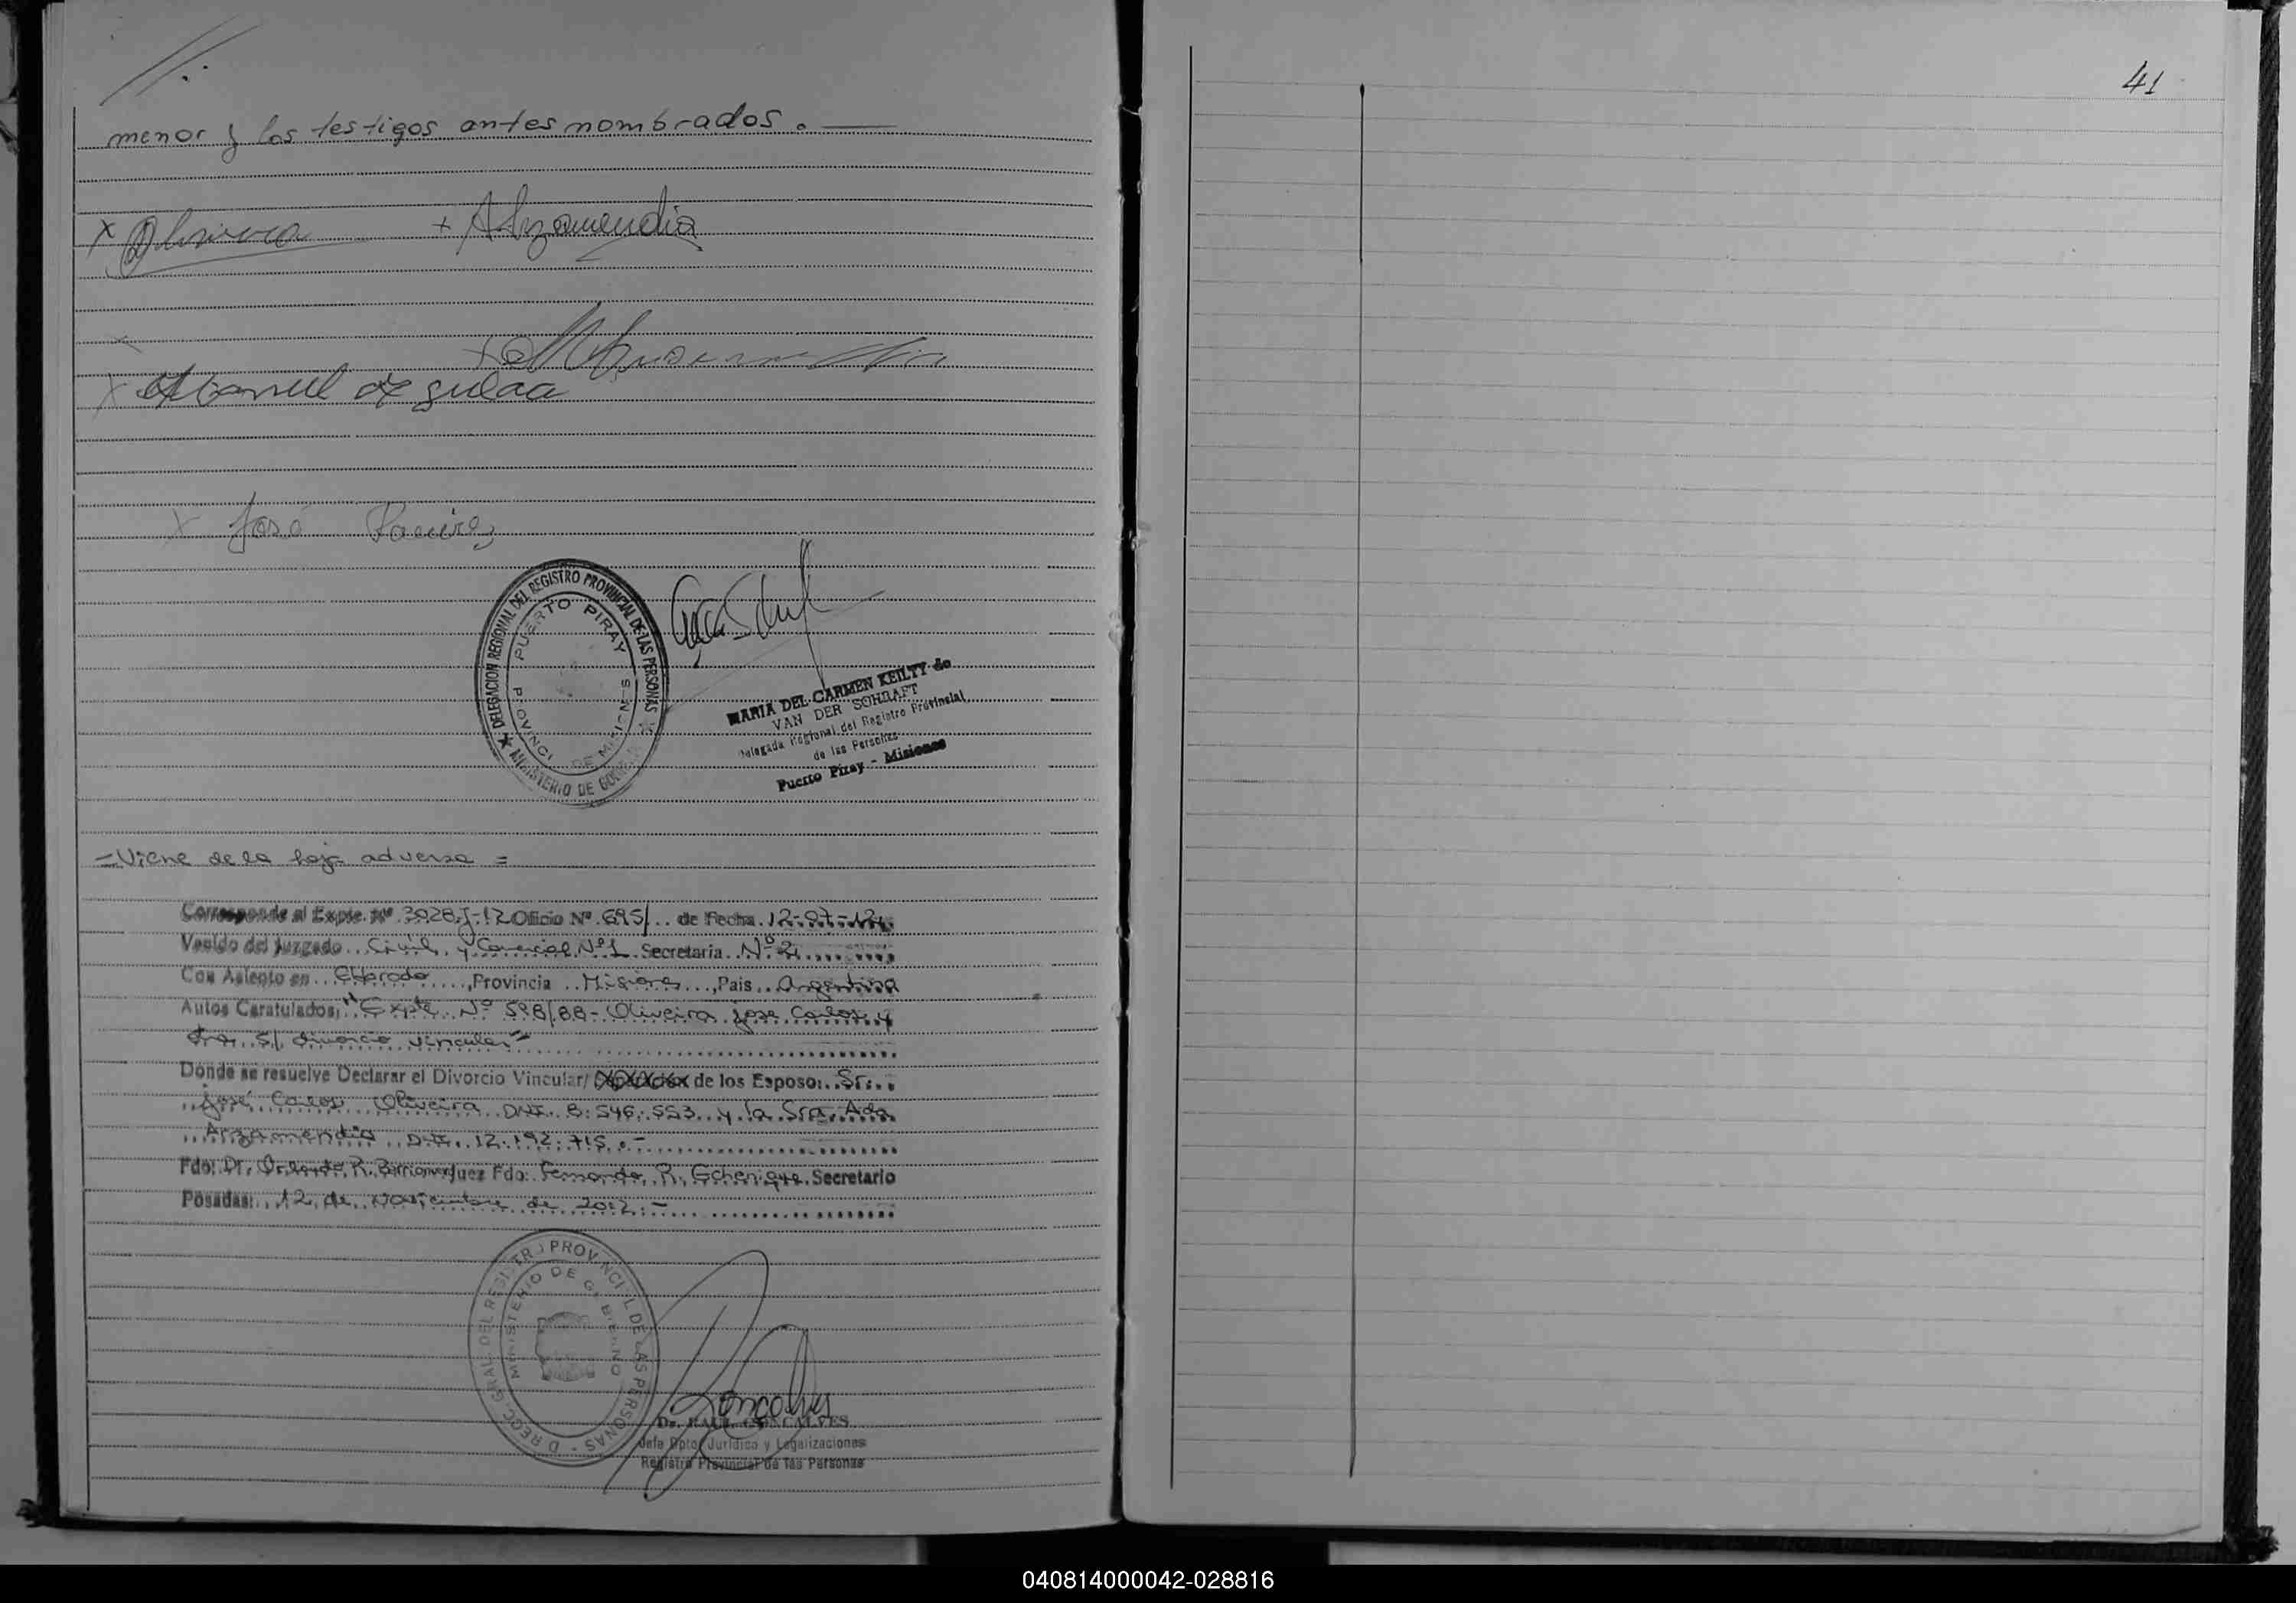 menor y los testigos antes nombrados. —
x Oliveira + A Arzamendia
x Manuel de
x José Ramirez
DELEGACION REGIONAL DEL REGISTRO PROVINCIAL DE LAS PERSONAS
MINISTERIO DE
PUERTO PIRAY
DE MISIONES
MARIA DEL CARMEN KEILTY de
VAN DER SCHRAFT
Delegada Regional del Registro Provincial
de las Personas
Puerto Piray - Misiones
= Viene de la hoja adversa =
Corresponde al Expte. Nº 3028-J-12 Oficio Nº 695/.. de Fecha. 12-07-12
Venido del Juzgado.. Civil y Comercial Nº1 Secretaria.. Nº 2
Con Asiento en.. Eldorado....., Provincia.. Misiones..., Pais.. Argentina
Autos Caratulados: "Expte. Nº 598/88 - Oliveira José Carlos y
otra s/ divorcio vincular"
Donde se resuelve Declarar el Divorcio Vincular/ de los Esposo:..Sr...
José Carlos Oliveira DNI. 8.546.553.. y la Sra. Ada
Arzamendia.. DNI. 12.192.715.-
Fdo: Dr. R. Juez Fdo: Fernando R. Secretario
Posadas:.. 12 de Noviembre de 2012.-
DIRECC. GRAL. DEL REGISTRO PROVINCIAL DE LAS PERSONAS
MINISTERIO DE GOBIERNO
Goncalves
Dr. RAUL GONCALVES
Jefe Dpto. Jurídico y Legalizaciones
Registro Provincial de las Personas
41
040814000042-028816